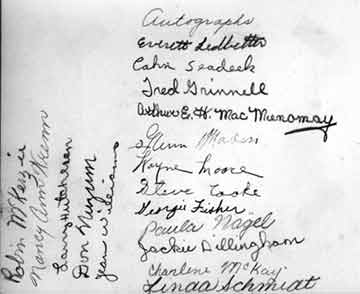 Autographs
Everett Ledbetter
Cahn Seadeek
Fred Grinnell
Arthur E. H. Mac Menomay
Glenn
Wayne Moore
Steve Cooke
Georgie Fisher
Paula Nagel
Jackie Dillingham
Charlene McKay
Linda Schmidt
Robin McKenzie
Nancy Ann
Larry Hutcherson
Don Nuzum
Jean Williams